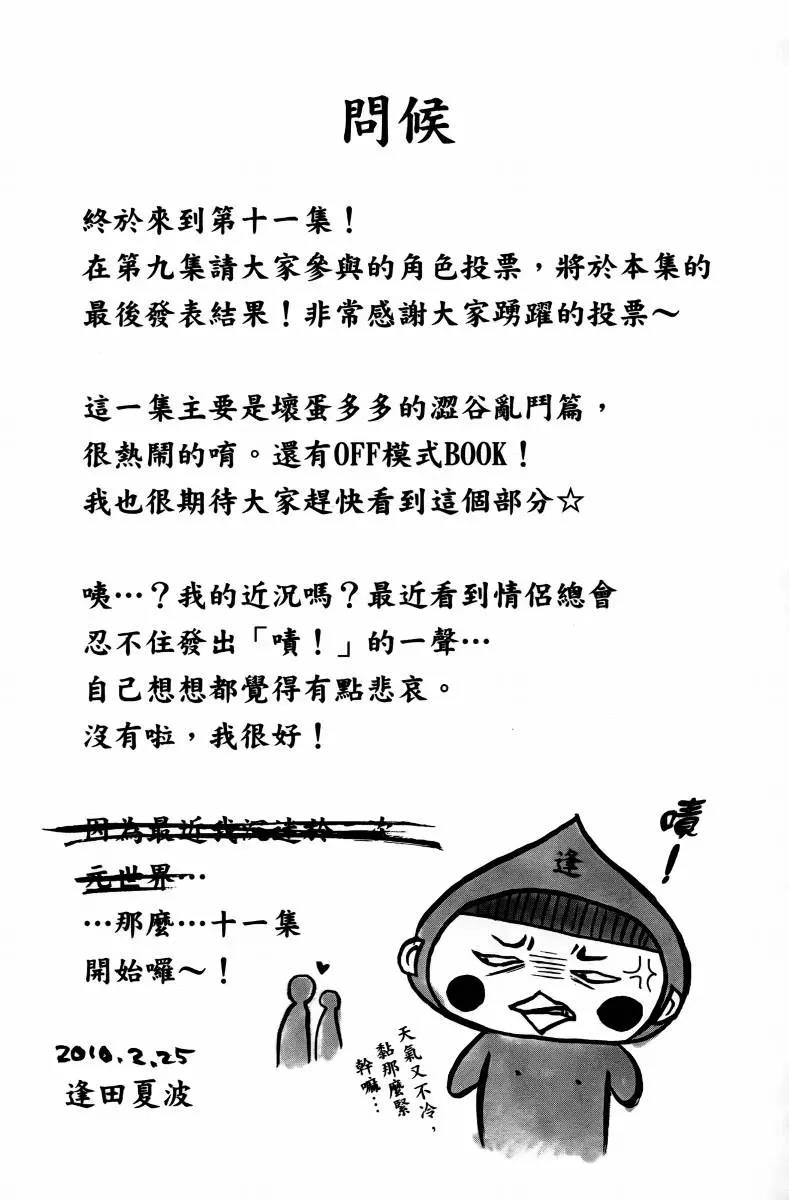 問候
終於來到第十一集！
在第九集請大家參與的角色投票，將於本集的
最後發表結果！非常感謝大家踴躍的投票～
這一集主要是壞蛋多多的澀谷亂鬥篇，
很熱鬧的唷。還有OFF模式BOOK！
我也很期待大家趕快看到這個部分☆
咦…？我的近況嗎？最近看到情侶總會
忍不住發出「嘖！」的一聲…
自己想想都覺得有點悲哀。
沒有啦，我很好！
因為最近我沉迷於二次
元世界…
…那麼…十一集
開始囉～！
2010.2.25
逢田夏波
嘖！
逢
天氣又不冷，
黏那麼緊
幹嘛…